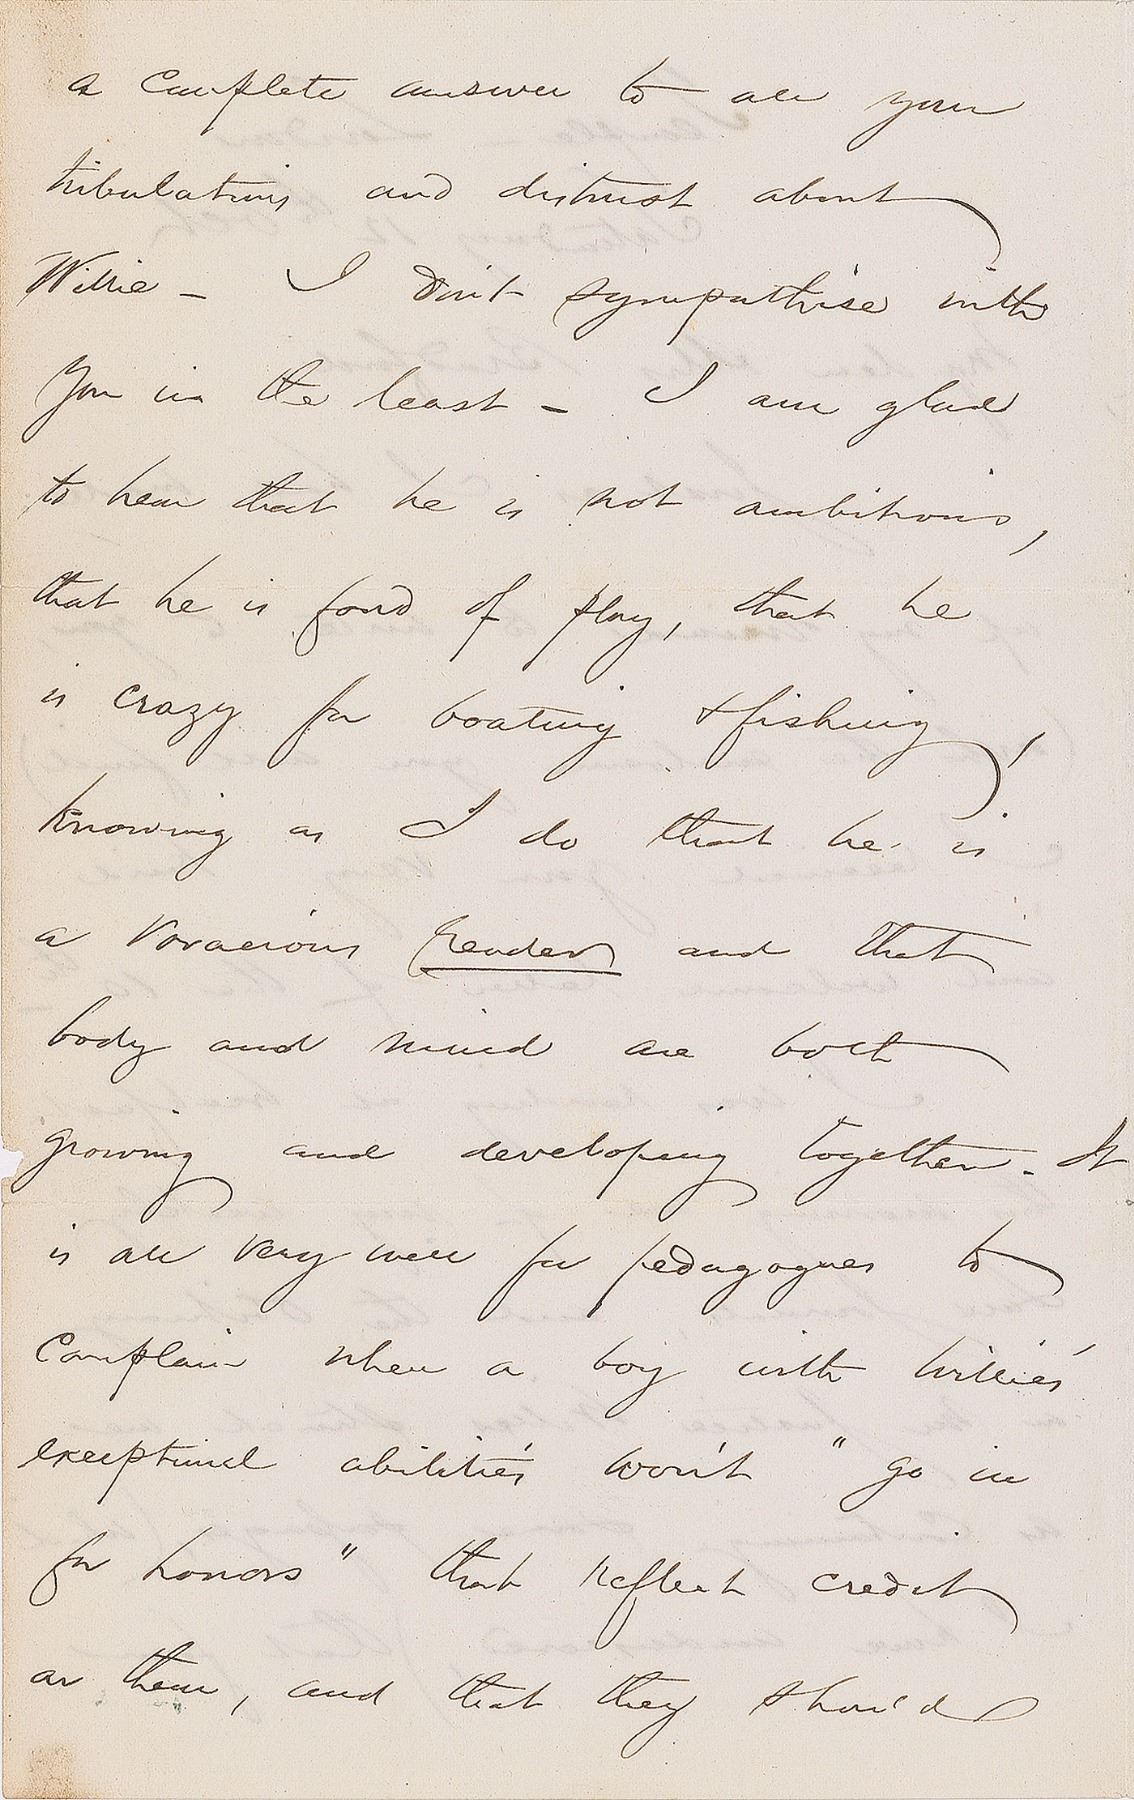 a complete answer to all your
tribulations and distrust about
Willie – I don't sympathise with
you in the least – I am glad
to hear that he is not ambitious,
that he is fond of play, that he
is crazy for boating & fishing,
knowing as I do that he is
a voracious reader and that
body and mind are both
growing and developing together. It
is all very well for pedagogues to
complain when a boy with Willie's
exceptional abilities won't "go in
for honors" that reflect credit
on them, and that they should